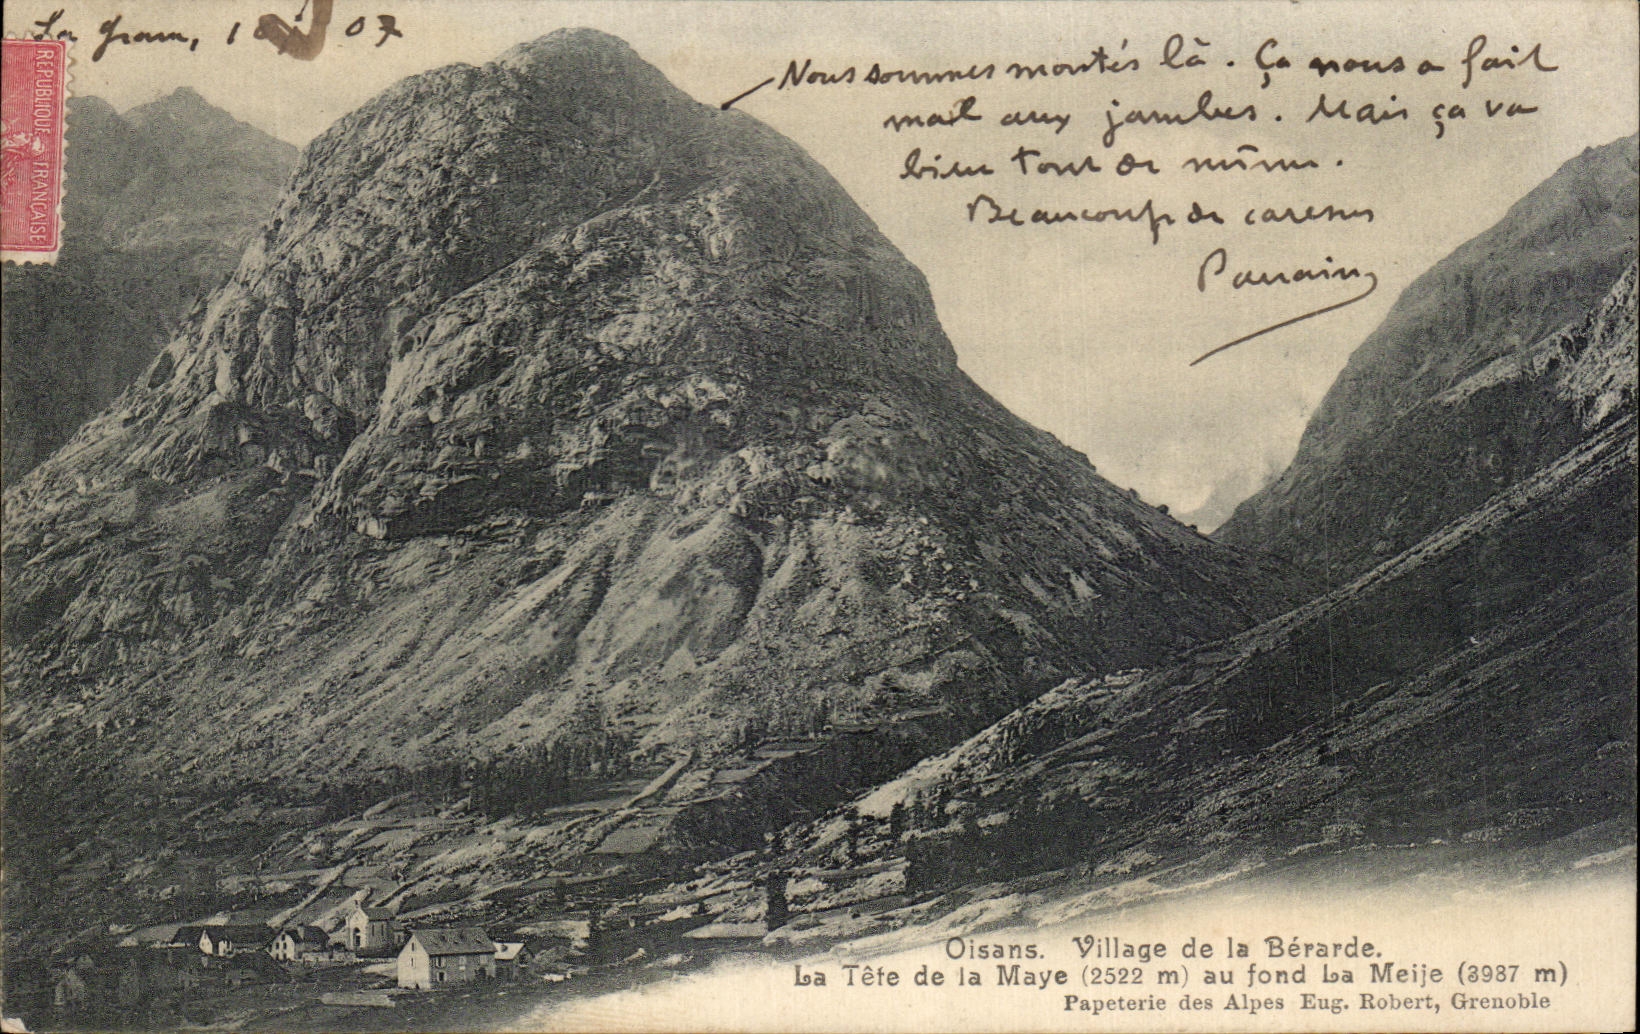 La Grave, 1 07
REPUBLIQUE FRANÇAISE
Nous sommes montés là. Ça nous a fait
mal aux jambes. Mais ça va
bien tout de même.
Beaucoup de caresses
Parrain
Oisans. Village de la Bérarde.
La Tête de la Maye (2522 m) au fond La Meije (3987 m)
Papeterie des Alpes Eug. Robert, Grenoble